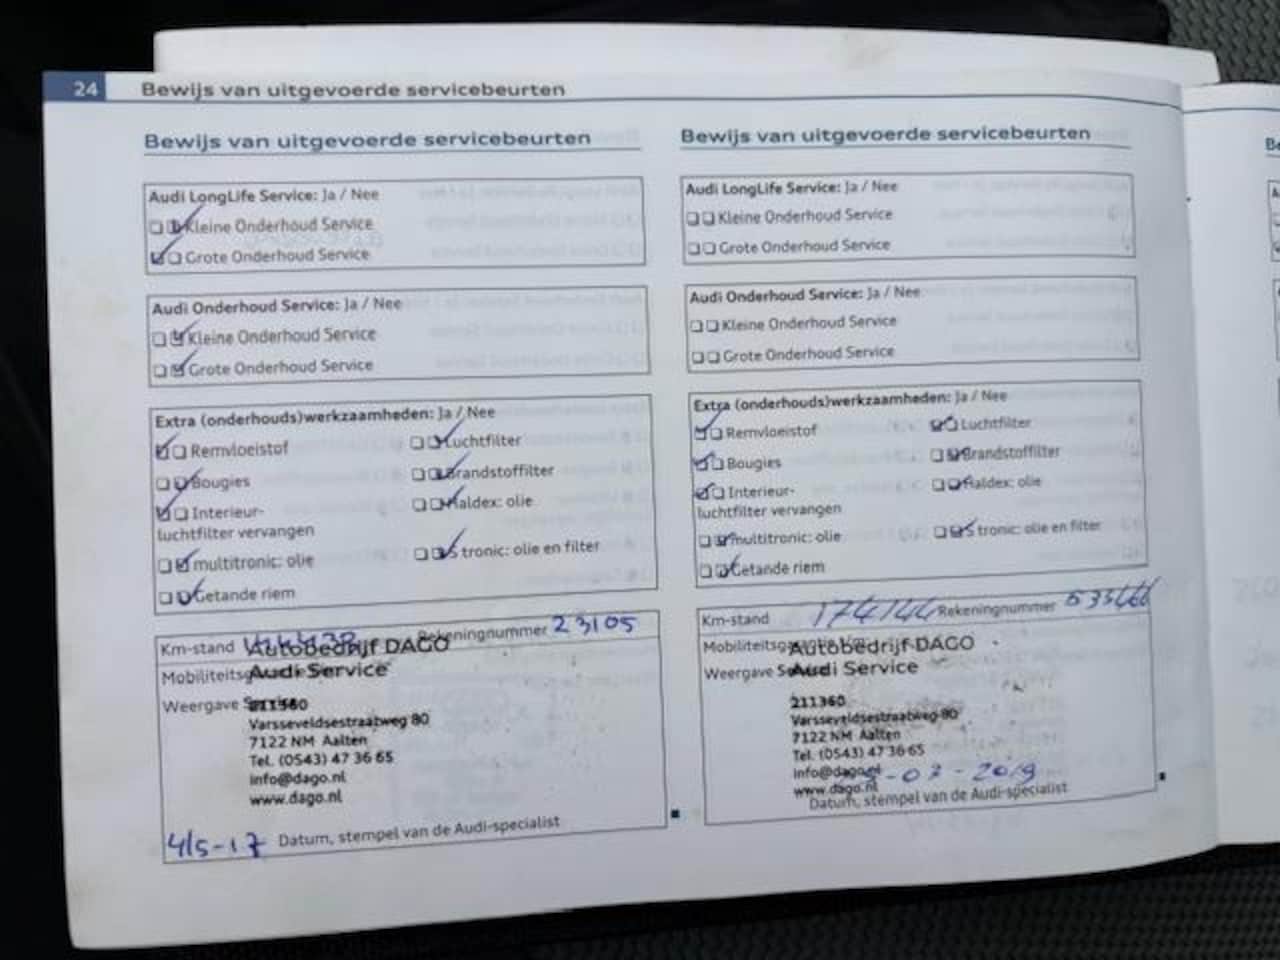 24 Bewijs van uitgevoerde servicebeurten
Bewijs van uitgevoerde servicebeurten
Audi LongLife Service: Ja / Nee
Kleine Onderhoud Service
Grote Onderhoud Service
Audi Onderhoud Service: Ja / Nee
Kleine Onderhoud Service
Grote Onderhoud Service
Extra (onderhouds)werkzaamheden: Ja / Nee
Remvloeistof Luchtfilter
Bougies Brandstoffilter
Interieur- Haldex: olie
luchtfilter vervangen
multitronic: olie S tronic: olie en filter
Getande riem
Km-stand Rekeningnummer 23105
Autobedrijf DAGO
Audi Service
Weergave
211360
Varsseveldsestraatweg 80
7122 NM Aalten
Tel. (0543) 47 36 65
info@dago.nl
www.dago.nl
4/5-17 Datum, stempel van de Audi-specialist
Bewijs van uitgevoerde servicebeurten
Audi LongLife Service: Ja / Nee
Kleine Onderhoud Service
Grote Onderhoud Service
Audi Onderhoud Service: Ja / Nee
Kleine Onderhoud Service
Grote Onderhoud Service
Extra (onderhouds)werkzaamheden: Ja / Nee
Remvloeistof Luchtfilter
Bougies Brandstoffilter
Interieur- Haldex: olie
luchtfilter vervangen
multitronic: olie S tronic: olie en filter
Getande riem
Km-stand 174744 Rekeningnummer
Autobedrijf DAGO
Weergave Audi Service
211360
Varsseveldsestraatweg 80
7122 NM Aalten
Tel. (0543) 47 36 65
info@dago.nl
www.dago.nl
Datum, stempel van de Audi-specialist